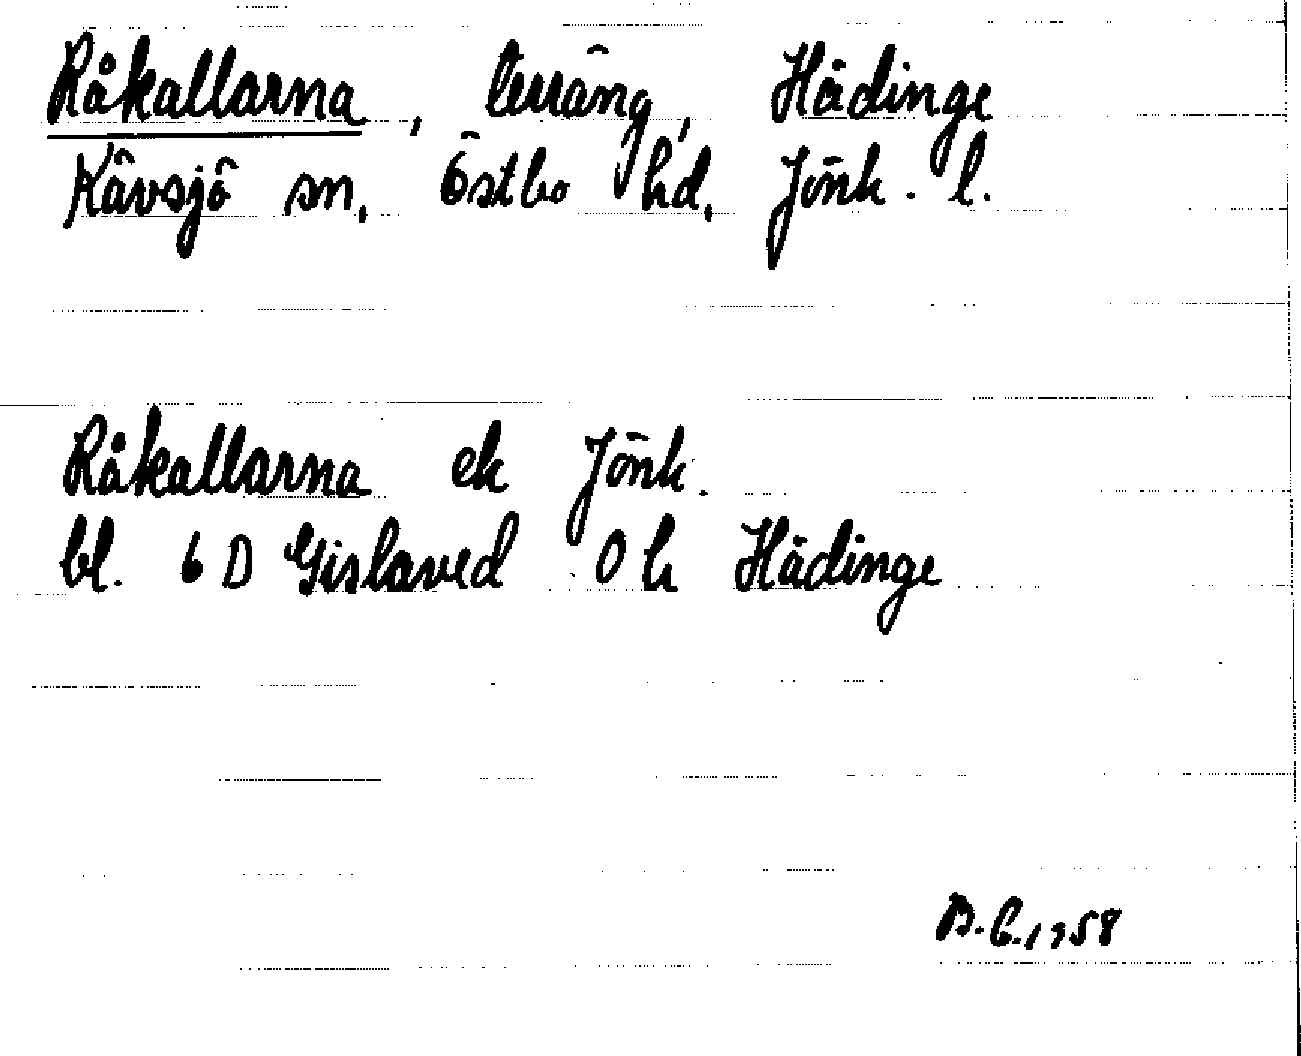 Råkallarna, terräng, Hädinge
Kävsjö sn, Östbo hd, Jönk. l.
Råkallarna ek Jönk.
bl. 6 D Gislaved 0 h Hädinge
B.E. 1958